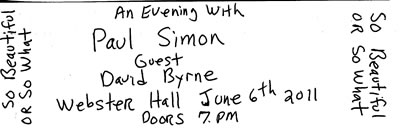 So Beautiful
OR So What
An Evening With
Paul Simon
Guest
David Byrne
Webster Hall June 6th 2011
Doors 7.PM
So Beautiful
OR So What